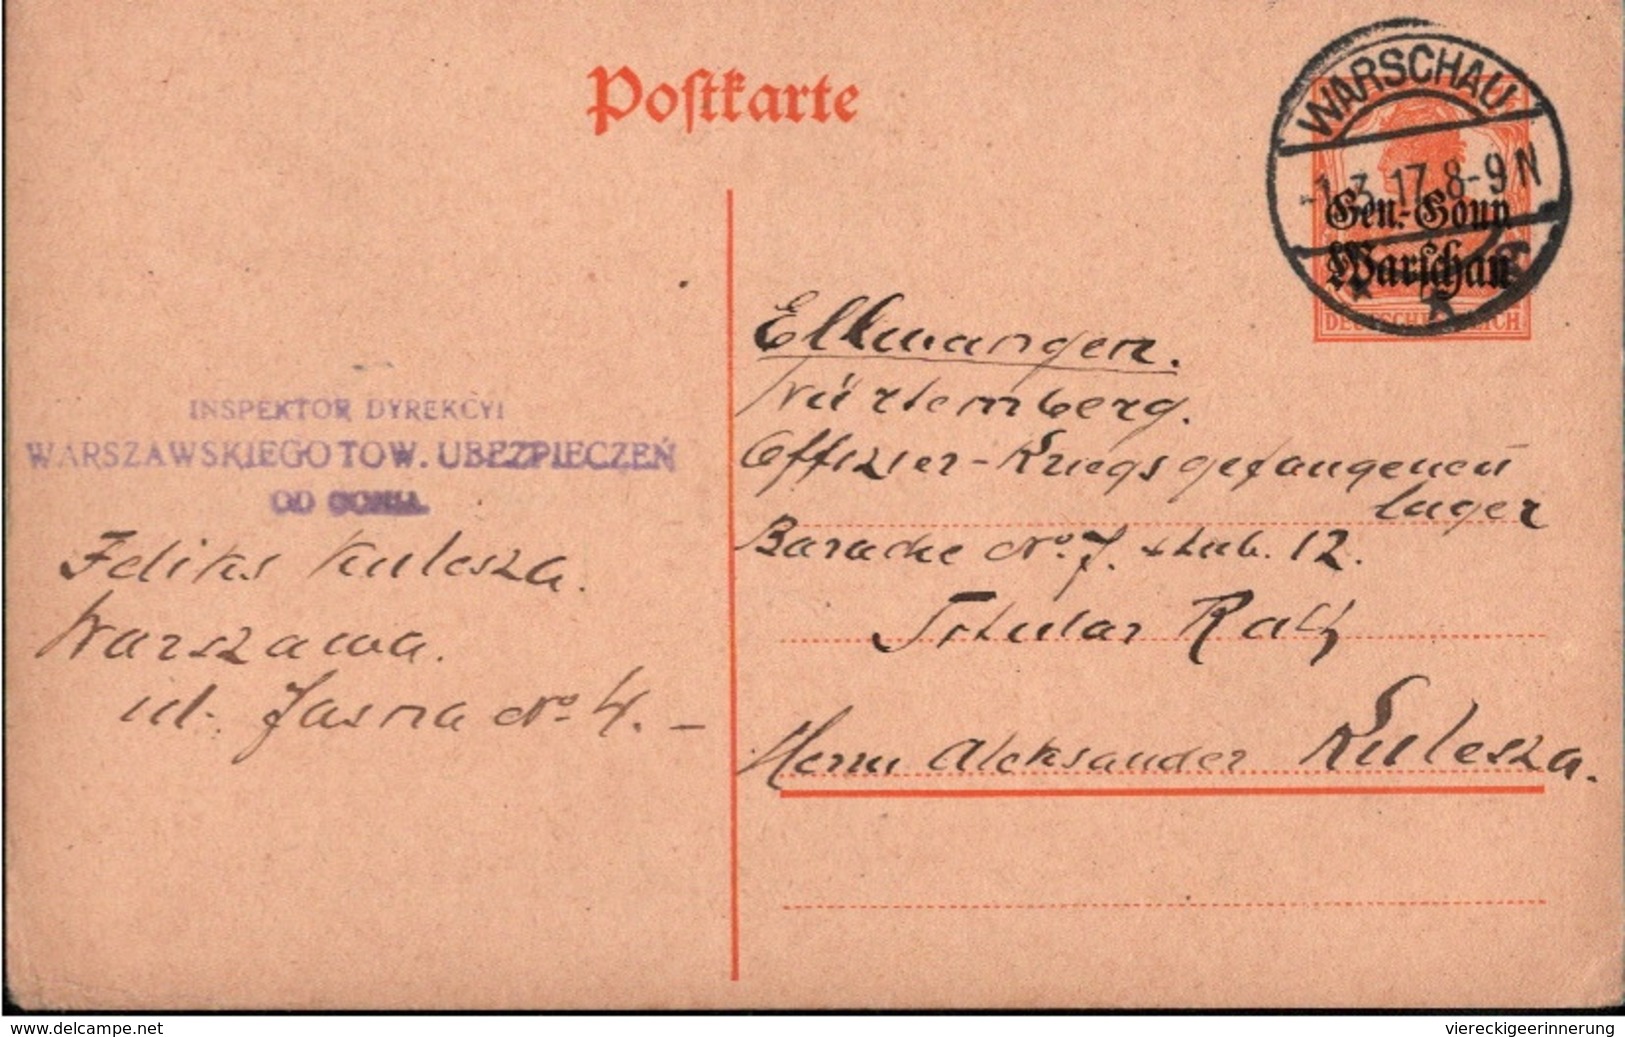 Postkarte
WARSCHAU
-1.3.17.8-9N
Gen.-Gouv.
Warschau
DEUTSCHES REICH
INSPEKTOR DYREKCYI
WARSZAWSKIEGO TOW. UBEZPIECZEŃ
OD OGNIA.
Feliks Kulesza.
Warszawa.
ul. Jasna No 4. –
Ellwangen.
Würtemberg.
Offizier-Kriegsgefangenen
lager
Baracke No. 7. Stub. 12.
Titular Rath
Herrn Aleksander Kulesza.
www.delcampe.net
viereckigeerinnerung